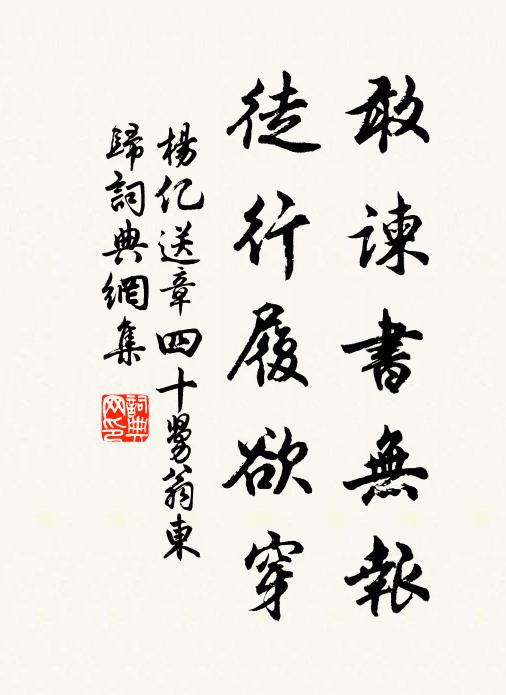 敢諫書無報
徒行履欲穿
楊亿送章四十舅翁東
歸詞典網集
詞典网印